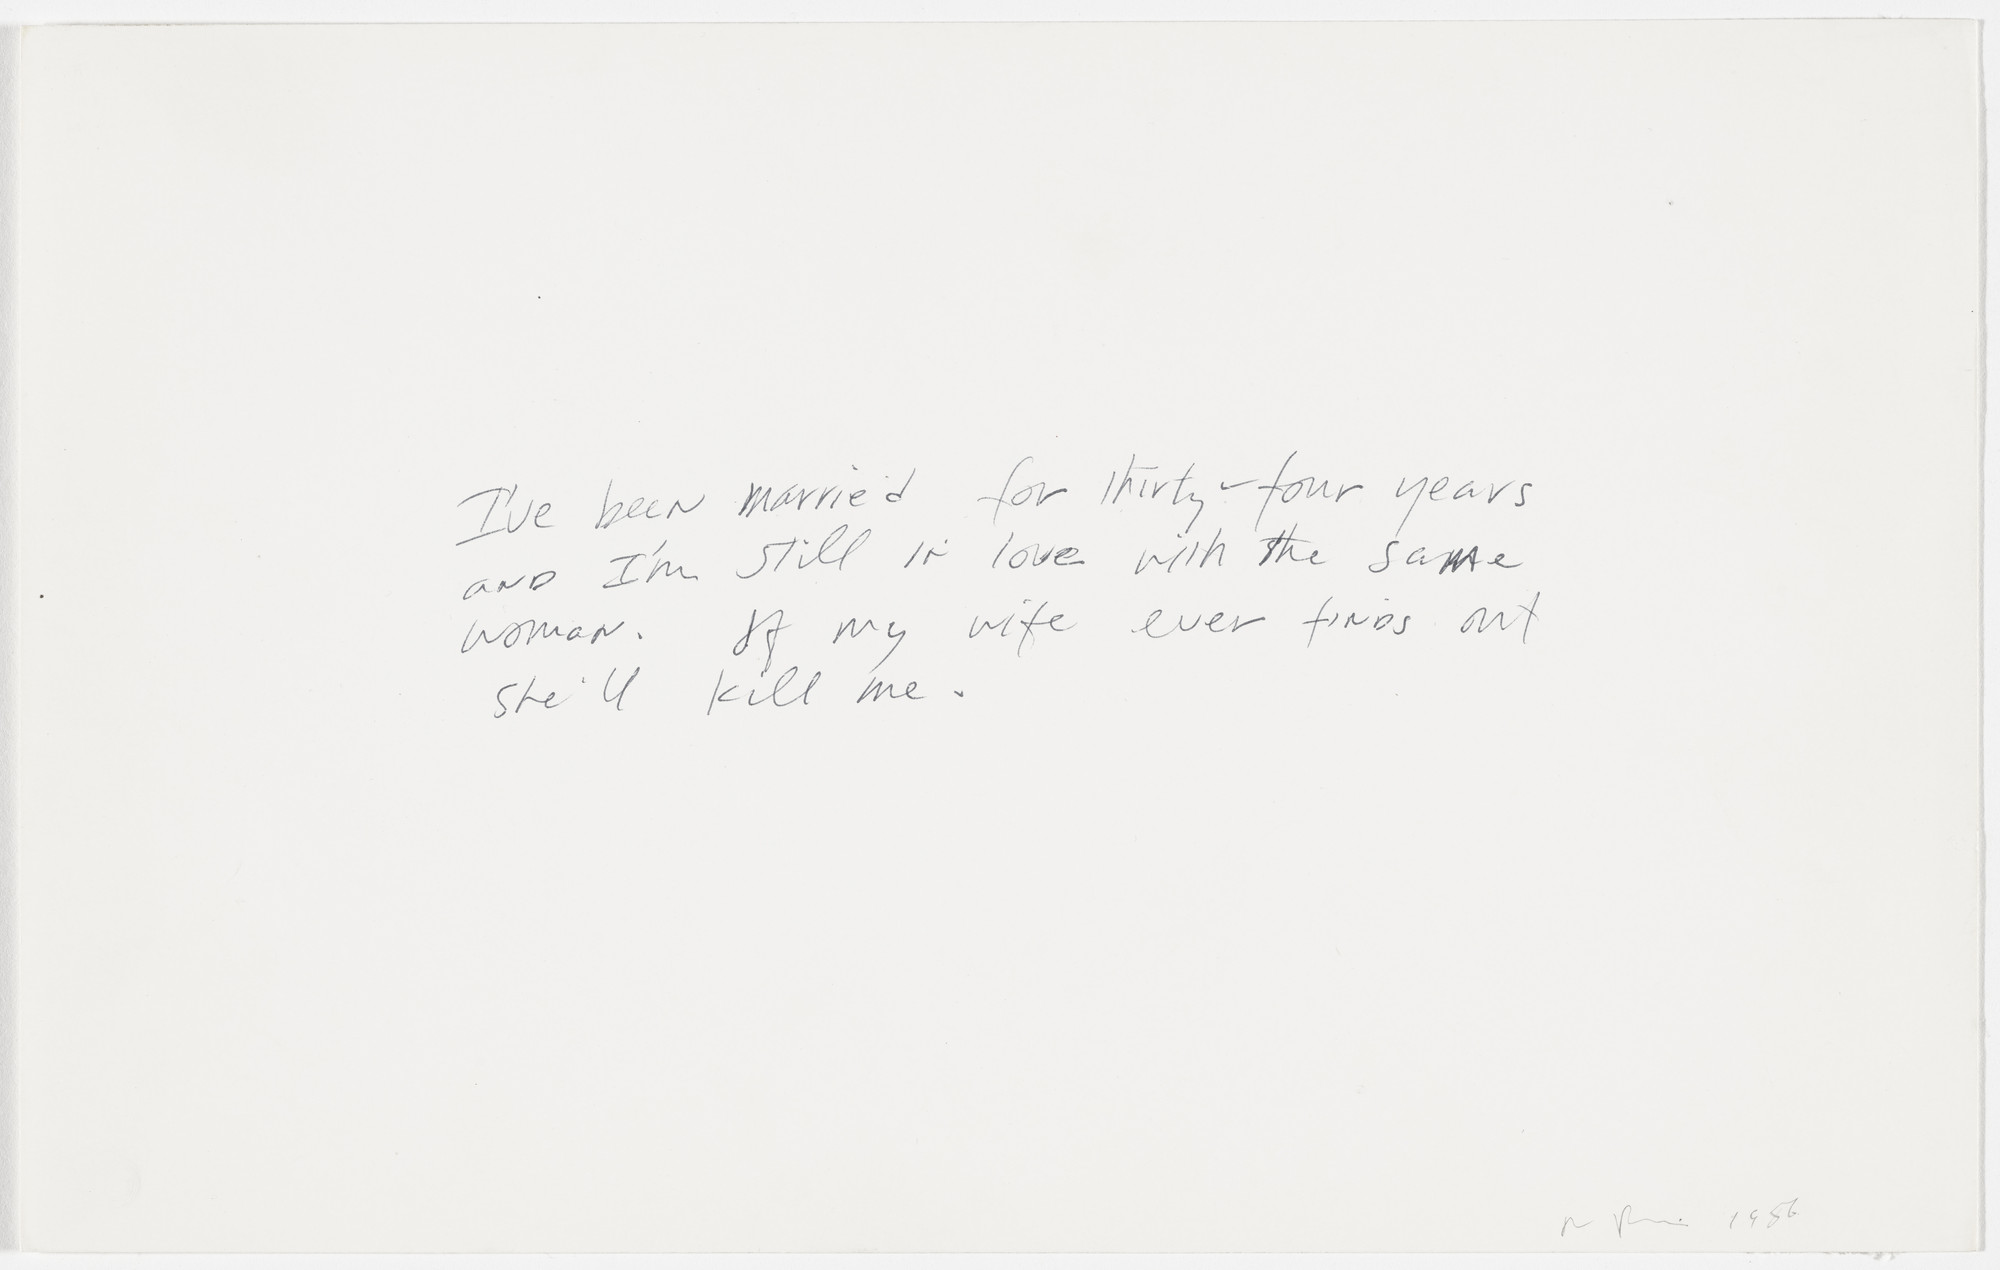 I've been married for thirty-four years
and I'm still in love with the same
woman. If my wife ever finds out
she'll kill me.
1986